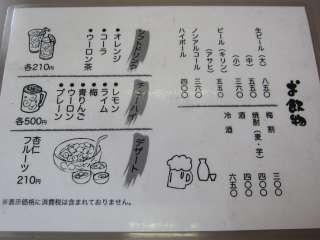 お飲物
生ビール（大） 八五〇
（中） 五六〇
（小） 三五〇
ビール（キリン） 六〇〇
（アサヒ） 六〇〇
ノンアルコール 三六〇
ハイボール 四〇〇
梅割 三〇〇
焼酎（麦・芋） 四〇〇
酒 四五〇
冷酒 六五〇
ソフトドリンク
●オレンジ
●コーラ
●ウーロン茶
各210円
チューハイ
●レモン
●ライム
●梅
●青りんご
●ウーロン
●プレーン
各500円
デザート
杏仁フルーツ
210円
※表示価格に消費税は含まれておりません。